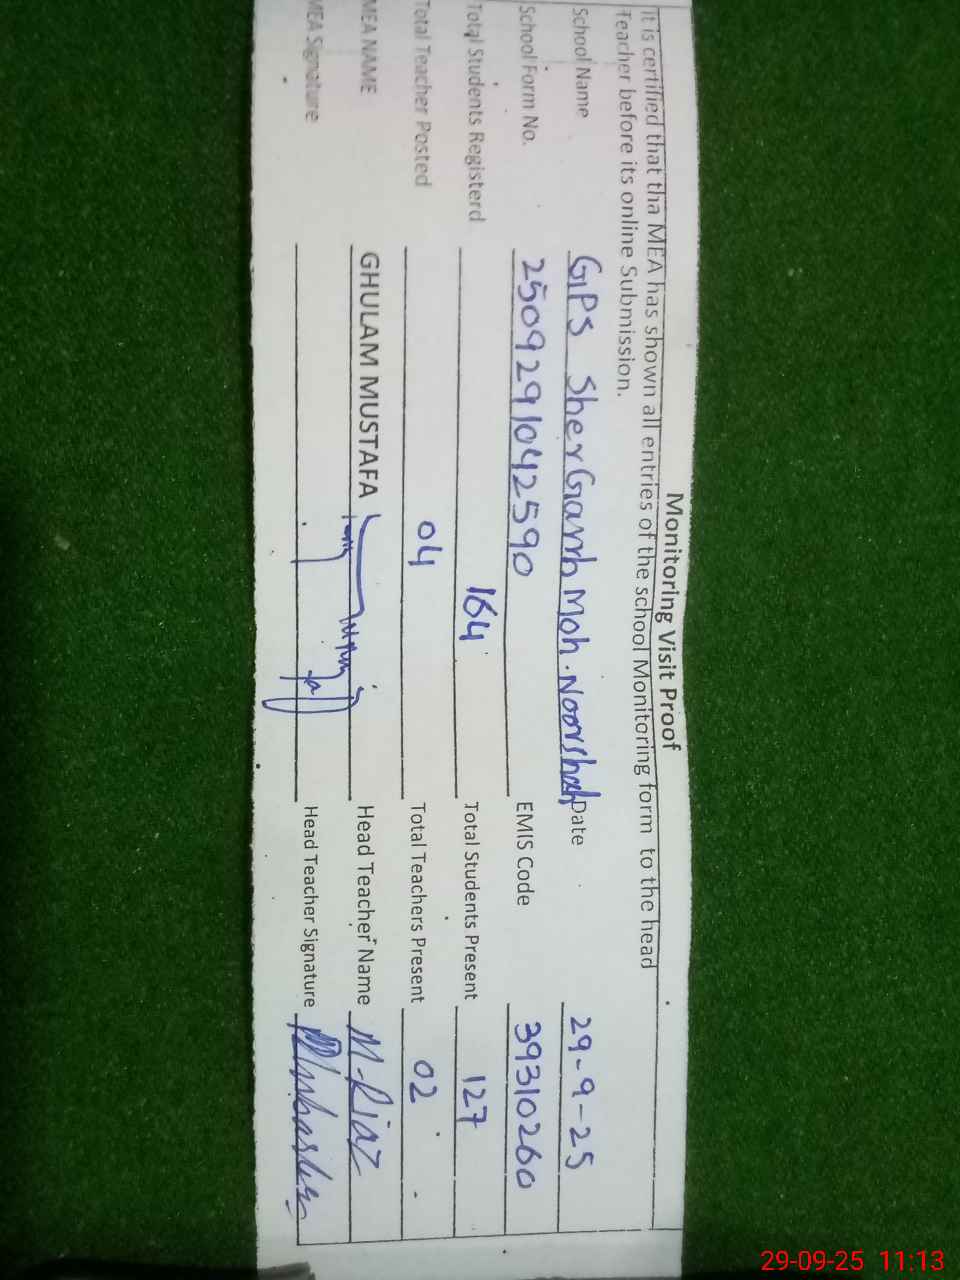 Monitoring Visit Proof
It is certified that tha MEA has shown all entries of the school Monitoring form to the head
Teacher before its online Submission.
School Name GPS Sher Garrh Moh. Noorshah Date 29-9-25
School Form No. 2509291042590 EMIS Code 39310260
Total Students Registerd 164 Total Students Present 127
Total Teacher Posted 04 Total Teachers Present 02
MEA NAME GHULAM MUSTAFA Head Teacher Name M-Riaz
MEA Signature Head Teacher Signature
29-09-25 11:13